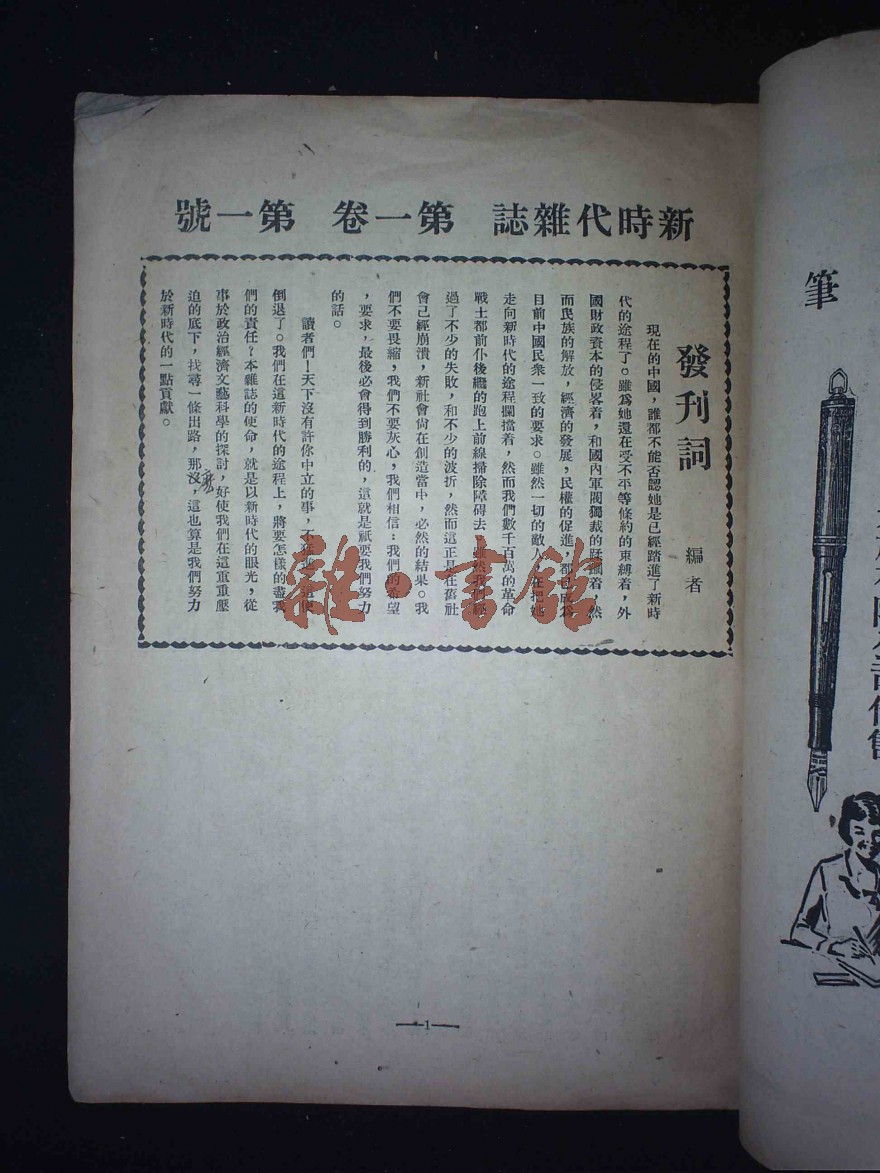 新時代雜誌 第一卷 第一號
發刊詞
編者
現在的中國，誰都不能否認她是已經踏進了新時
代的途程了。雖爲她還在受不平等條約的束縛着，外
國財政資本的侵畧着，和國內軍閥獨裁的蹂躪着，然
而民族的解放，經濟的發展，民權的促進，都已成爲
目前中國民衆一致的要求。雖然一切的敵人，在把她
走向新時代的途程攔擋着，然而我們數千百萬的革命
戰士都前仆後繼的跑上前線掃除障碍去。雖然我們經
過了不少的失敗，和不少的波折，然而這正是在舊社
會已經崩潰，新社會尙在創造當中，必然的結果。我
們不要畏縮，我們不要灰心，我們相信：我們的希望
，要求，最後必會得到勝利的，這就是祇要我們努力
的話。
讀者們！天下沒有許你中立的事，不 便
倒退了。我們在這新時代的途程上，將要怎樣的盡我
們的責任？本雜誌的使命，就是以新時代的眼光，從
事於政治經濟文藝科學的探討，好使我們在這重重壓
迫的底下，找尋一條出路，那沒，這也算是我們努力
於新時代的一點貢獻。
麽
雜·書館
—1—
筆